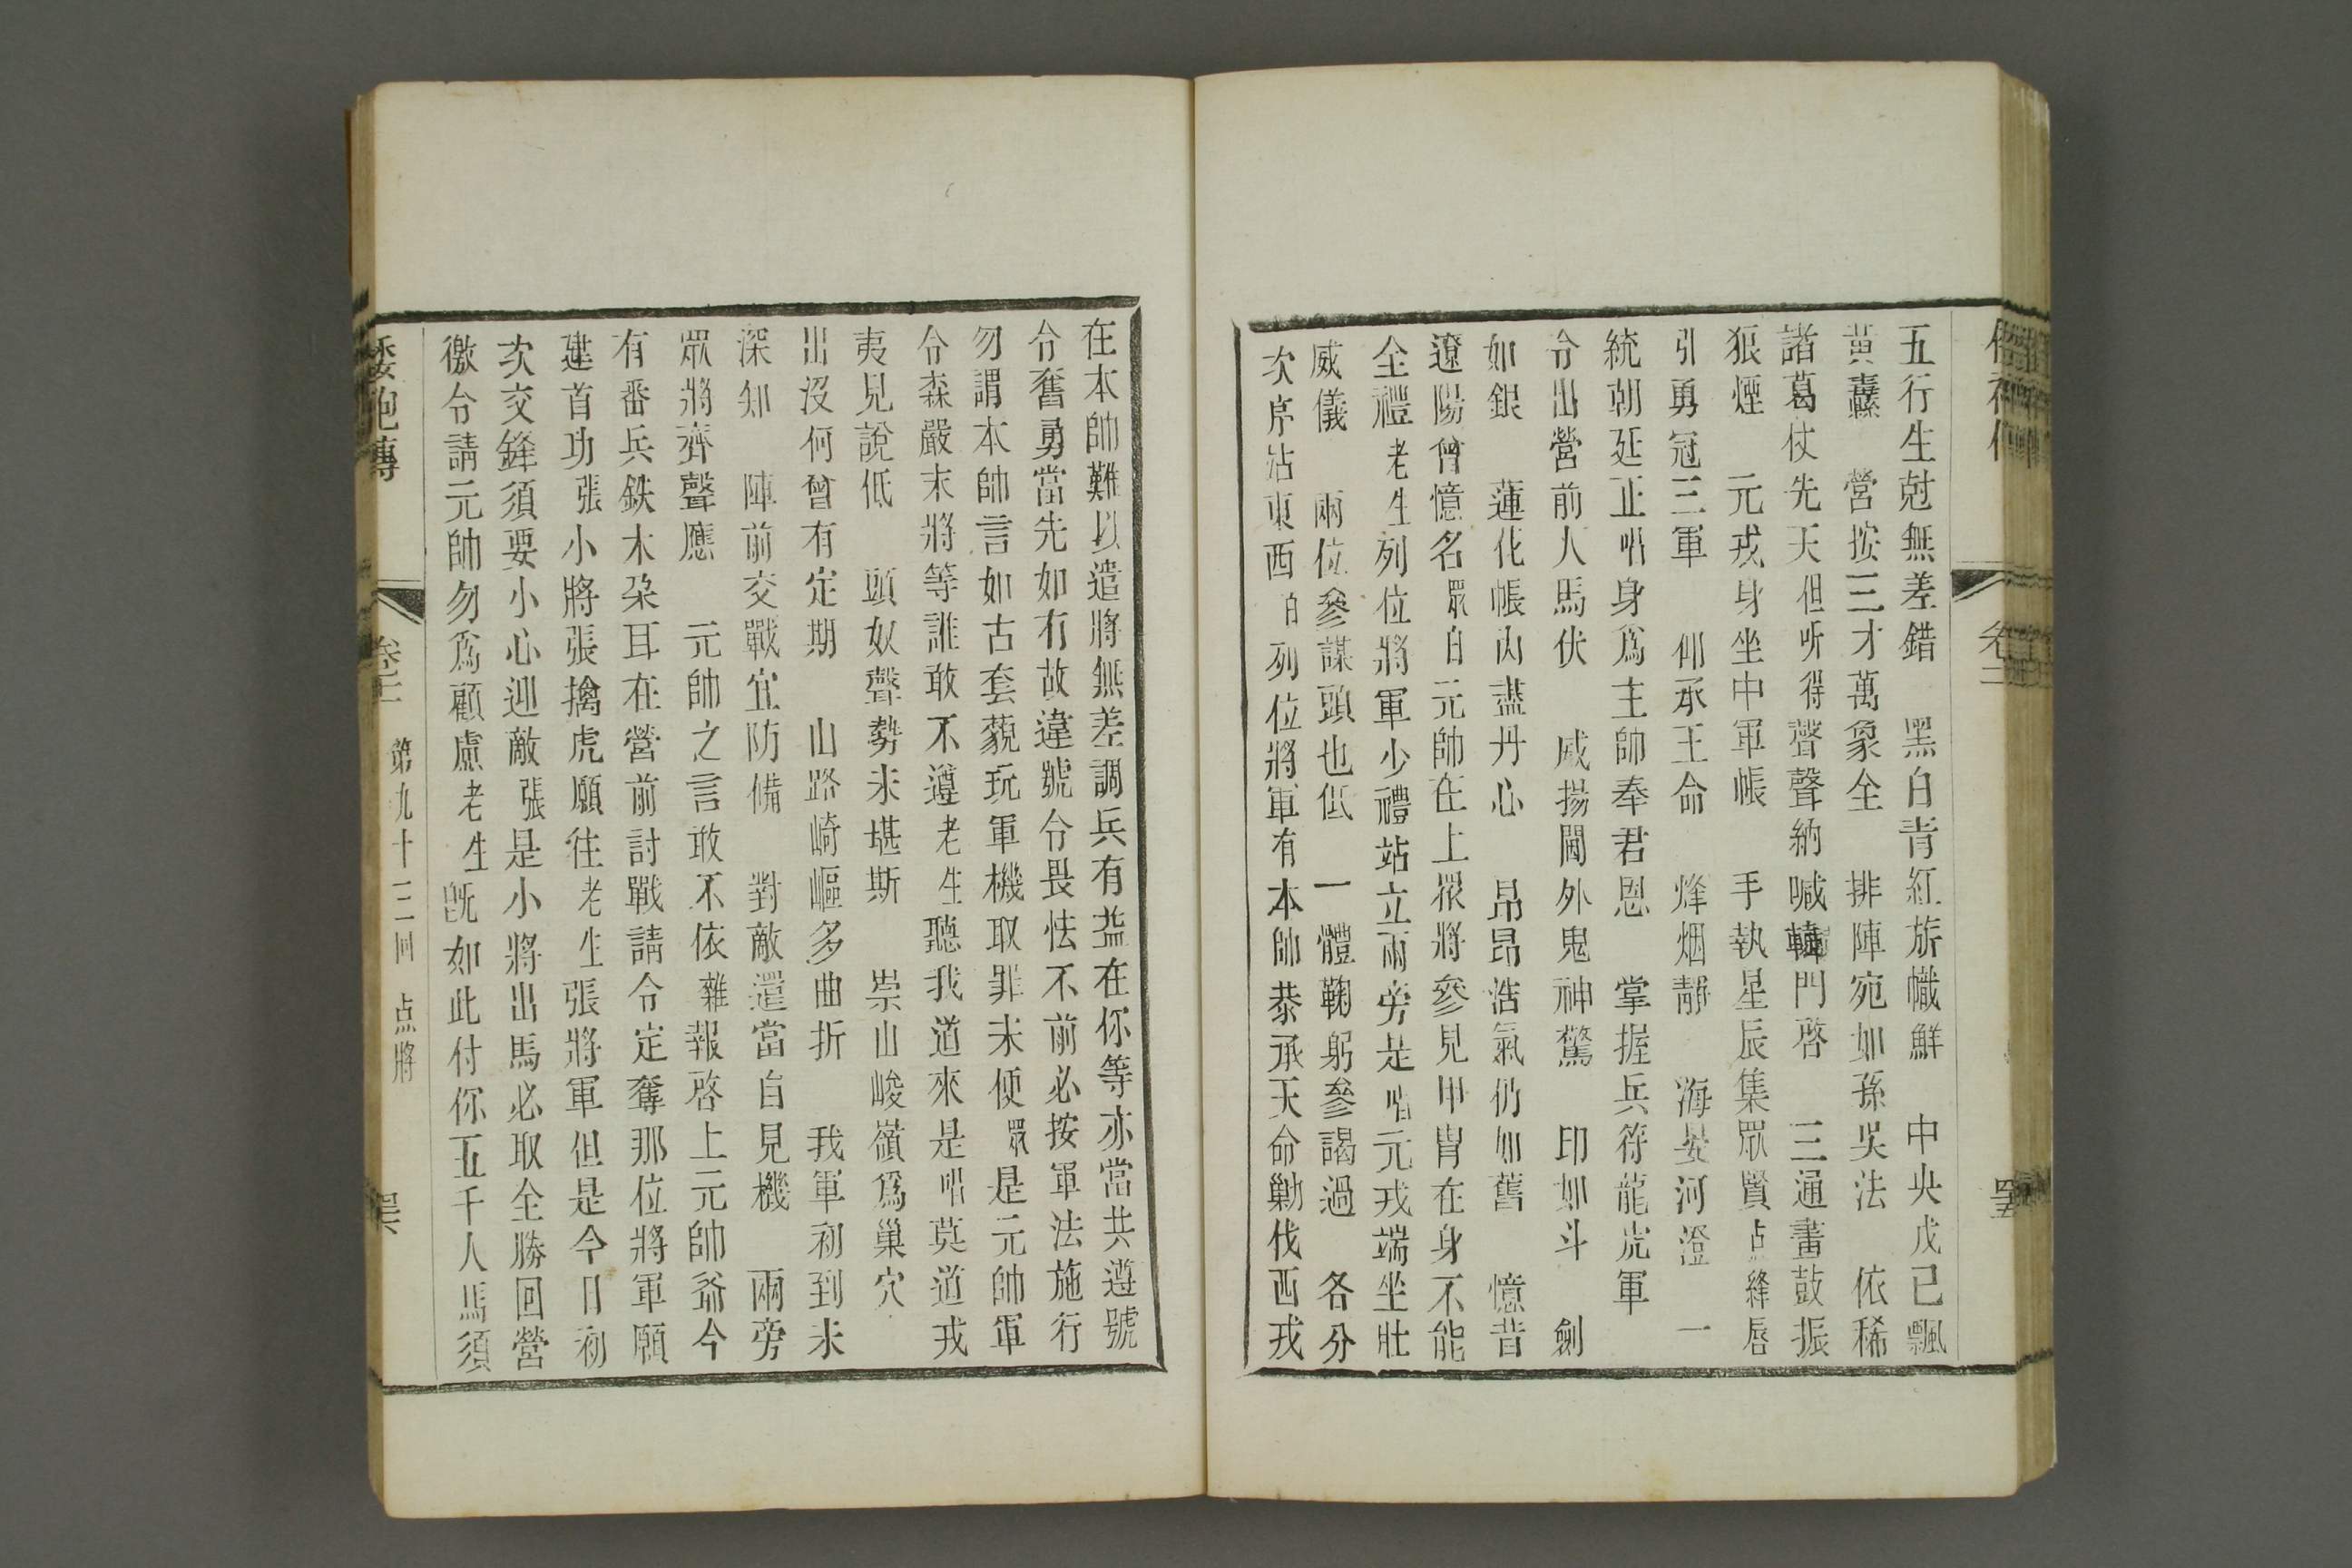 五行生尅無差錯　黑白青紅旂幟鮮　中央戊己飄
黃纛　營按三才萬象全　排陣宛如孫吳法　依稀
諸葛仗先天但听得聲聲納喊轅門啓　三通畫鼓振
狼煙　元戎身坐中軍帳　手執星辰集眾賢点絳唇
引勇冠三軍　仰承王命　烽烟靜　海晏河澄　一
統朝廷正唱身爲主帥奉君恩　掌握兵符龍虎軍
令出營前人馬伏　威揚閫外鬼神驚　印如斗　劍
如銀　蓮花帳內盡丹心　昂昂浩氣仍如舊　憶昔
遼陽曾憶名眾白元帥在上眾將參見甲冑在身不能
全禮老生列位將軍少禮站立兩旁是唱元戎端坐壯
威儀　兩位參謀頭也低　一體鞠躬參謁過　各分
次序沾東西白列位將軍有本帥恭承天命勦伐西戎
卷三
在本帥難以遣將無差調兵有益在你等亦當共遵號
令奮勇當先如有故違號令畏怯不前必按軍法施行
勿謂本帥言如古套藐玩軍機取罪未便眾是元帥軍
令森嚴末將等誰敢不遵老生聽我道來是唱莫道戎
夷見說低　頭奴聲勢未堪斯　崇山峻嶺爲巢穴
出沒何曾有定期　山路崎嶇多曲折　我軍初到未
深知　陣前交戰宜防備　對敵還當自見機　兩旁
眾將齊聲應　元帥之言敢不依雜報啓上元帥爺今
有番兵鉄木朶耳在營前討戰請令定奪那位將軍願
建首功張小將張擒虎願往老生張將軍但是今日初
次交鋒須要小心迎敵張是小將出馬必取全勝回營
徼令請元帥勿爲顧慮老生既如此付你五千人馬須
倭袍傳　第九十三回　点將